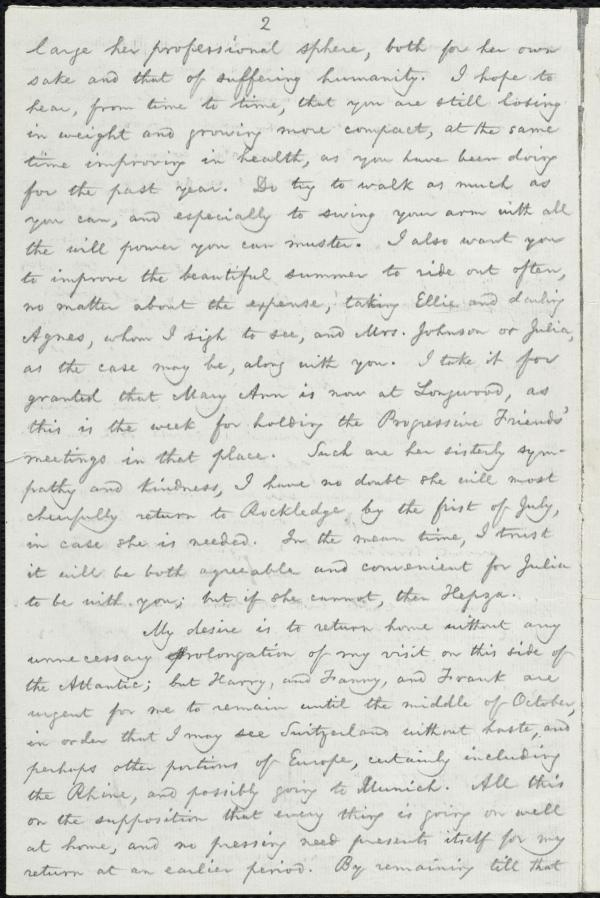 2
large her professional sphere, both for her own
sake and that of suffering humanity. I hope to
hear, from time to time, that you are still losing
in weight and growing more compact, at the same
time improving in health, as you have been doing
for the past year. Do try to walk as much as
you can, and especially to swing your arm with all
the will power you can muster. I also want you
to improve the beautiful summer to ride out often,
no matter about the expense, taking Ellie and darling
Agnes, whom I sigh to see, and Mrs. Johnson or Julia,
as the case may be, along with you. I take it for
granted that Mary Ann is now at Longwood, as
this is the week for holding the Progressive Friends'
meetings in that place. Such are her sisterly sym-
pathy and kindness, I have no doubt she will most
cheerfully return to Rockledge by the first of July,
in case she is needed. In the mean time, I trust
it will be both agreeable and convenient for Julia
to be with you; but if she cannot, then Hepza.
My desire is to return home without any
unnecessary prolongation of my visit on this side of
the Atlantic; but Harry, and Fanny, and Frank are
urgent for me to remain until the middle of October,
in order that I may see Switzerland without haste, and
perhaps other portions of Europe, certainly including
the Rhine, and possibly going to Munich. All this
on the supposition that every thing is going on well
at home, and no pressing need presents itself for my
return at an earlier period. By remaining till that